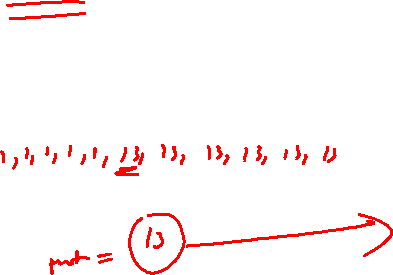 1, 1, 1, 1, 1, 13, 13, 13, 13, 13, 13
= 13